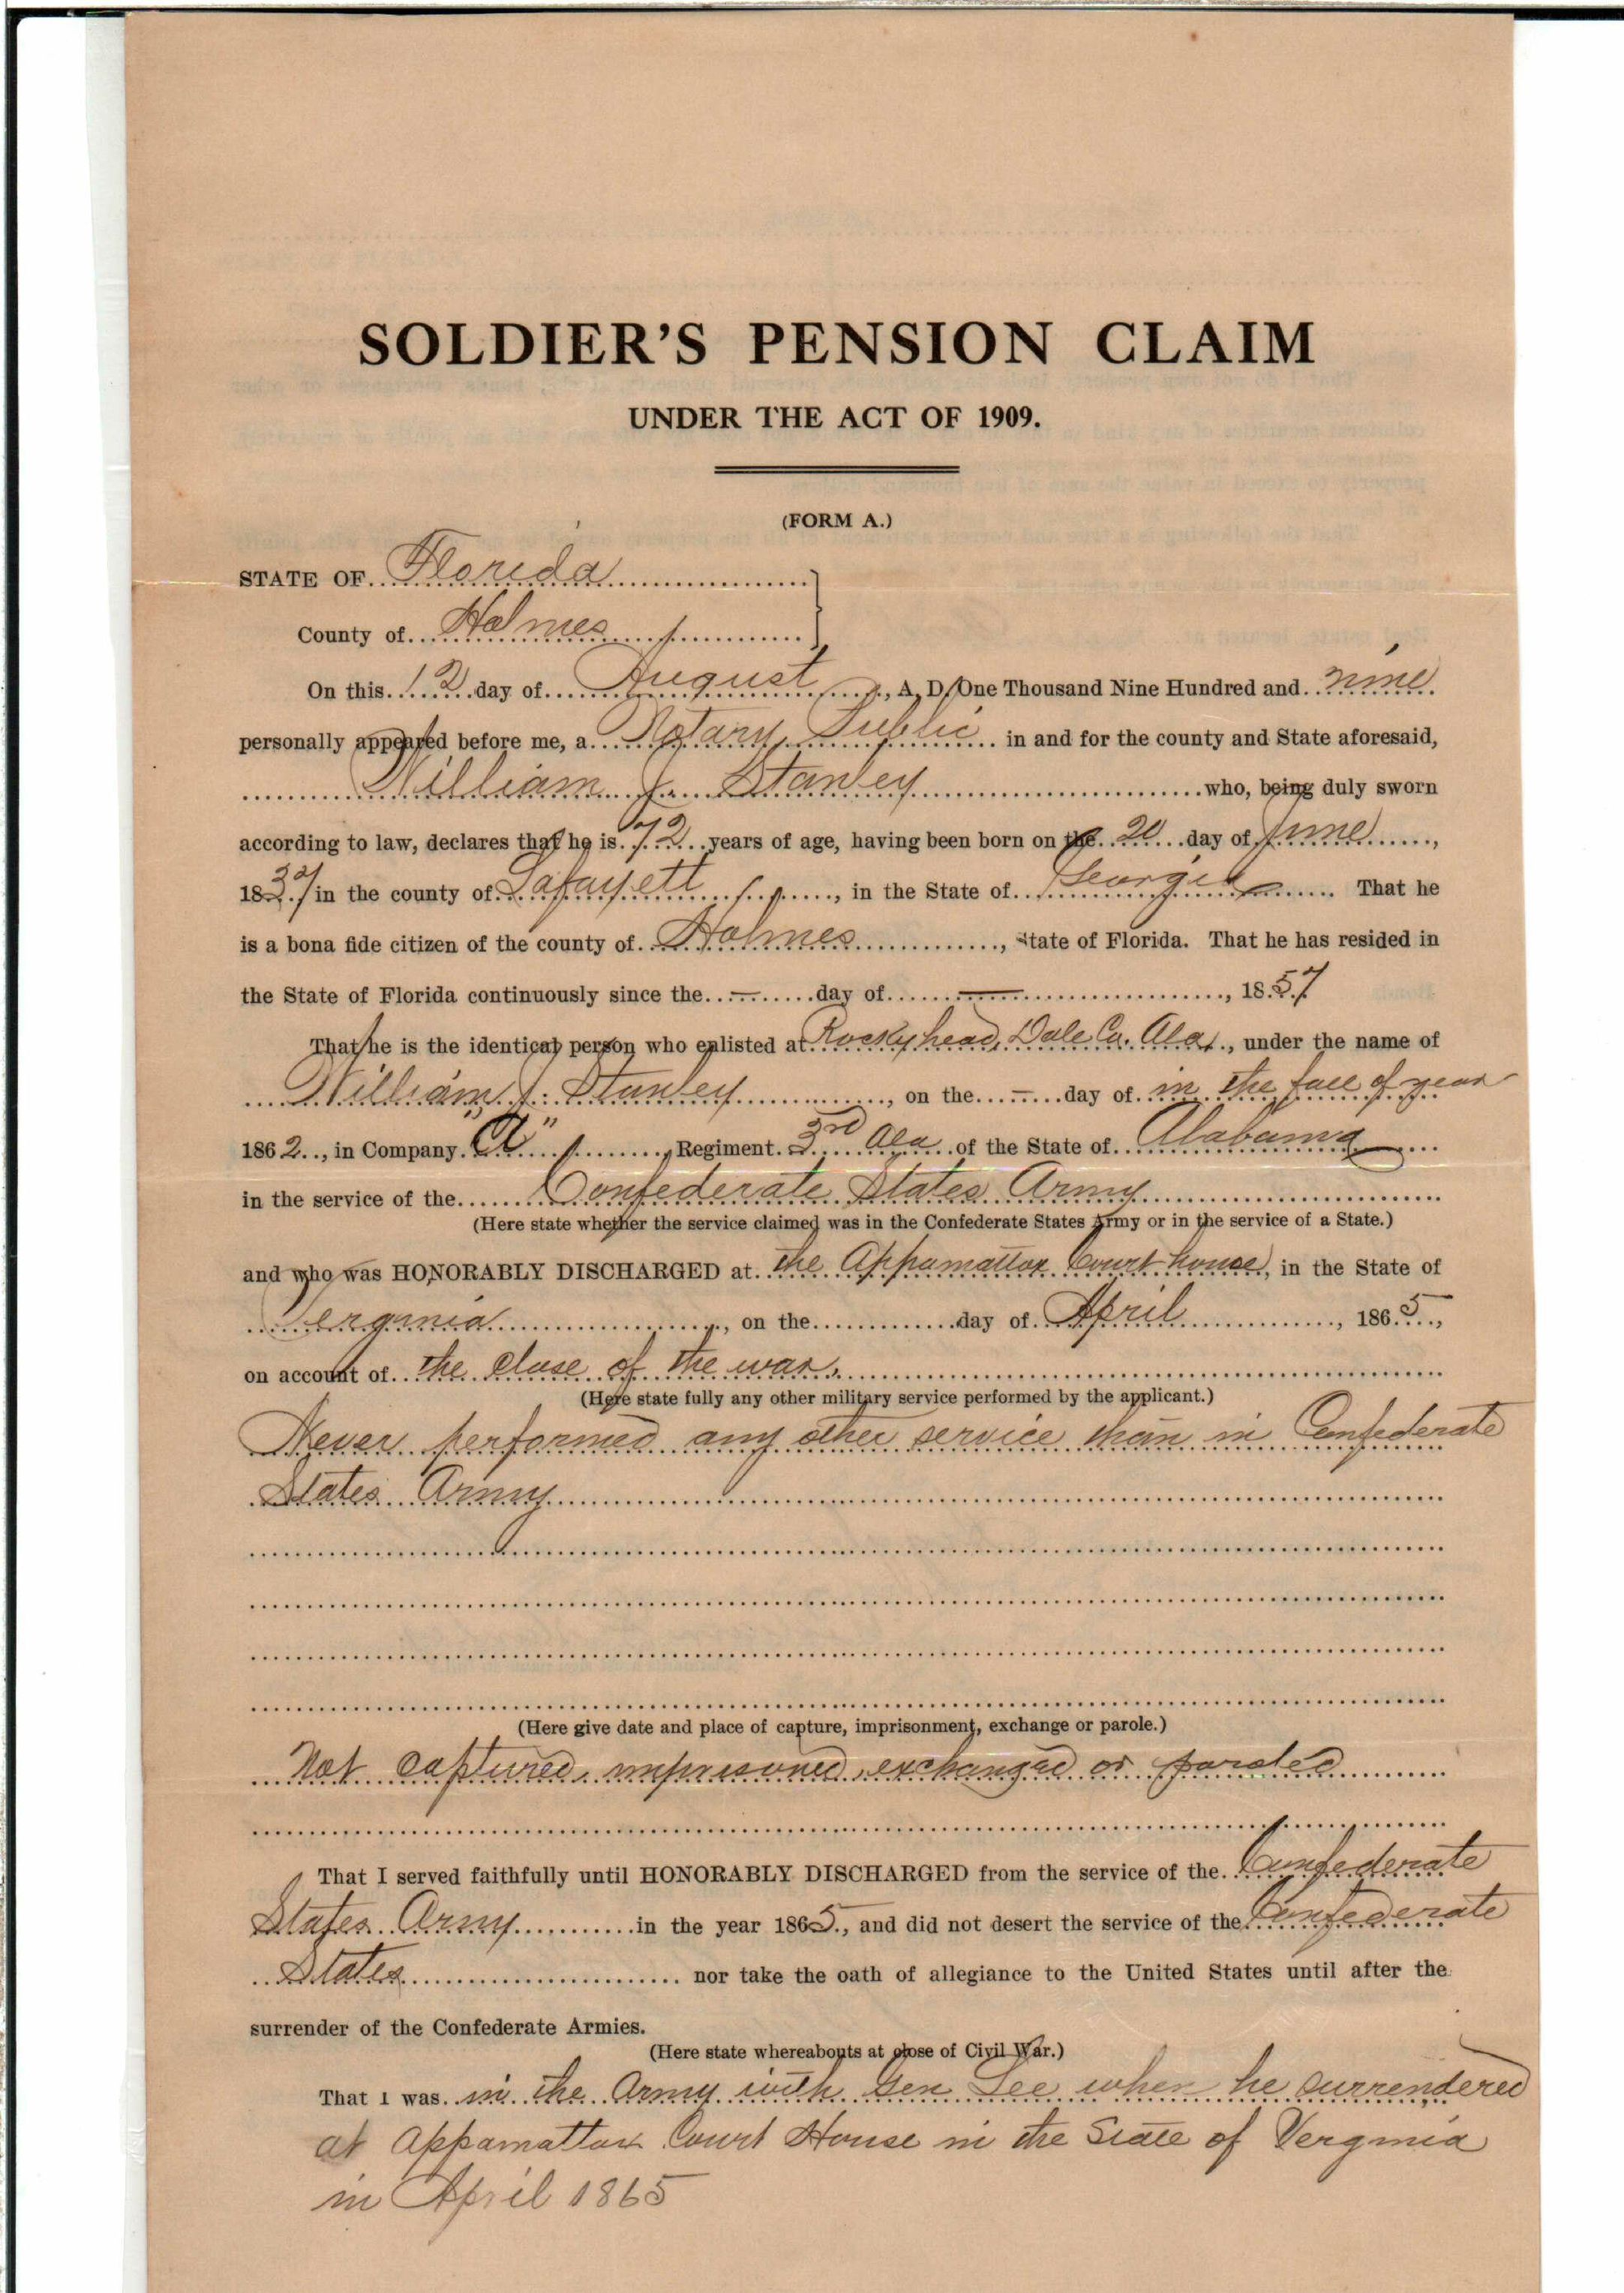 SOLDIER'S PENSION CLAIM
UNDER THE ACT OF 1909.
(FORM A.)
STATE OF Florida
County of Holmes
On this 12 day of August, A. D. One Thousand Nine Hundred and nine
personally appeared before me, a Notary Public in and for the county and State aforesaid,
William J. Stanley who, being duly sworn
according to law, declares that he is 72 years of age, having been born on the 20 day of June,
1837 in the county of Lafayett, in the State of Georgia That he
is a bona fide citizen of the county of Holmes, State of Florida. That he has resided in
the State of Florida continuously since the — day of —, 1857
That he is the identical person who enlisted at Rockyhead, Dale Co. Ala., under the name of
William J. Stanley, on the — day of in the fall of year
1862, in Company "A", Regiment 3rd Ala of the State of Alabama
in the service of the Confederate States Army
(Here state whether the service claimed was in the Confederate States Army or in the service of a State.)
and who was HONORABLY DISCHARGED at the Appamattox Court house, in the State of
Verginia, on the day of April, 1865,
on account of the close of the war.
(Here state fully any other military service performed by the applicant.)
Never performed any other service than in Confederate
States Army
(Here give date and place of capture, imprisonment, exchange or parole.)
Not captured, imprisoned, exchanged or paroled
That I served faithfully until HONORABLY DISCHARGED from the service of the Confederate
States Army in the year 1865, and did not desert the service of the Confederate
States nor take the oath of allegiance to the United States until after the
surrender of the Confederate Armies.
(Here state whereabouts at close of Civil War.)
That I was in the Army with Gen Lee when he surrendered
at Appamattox Court House in the State of Verginia
in April 1865